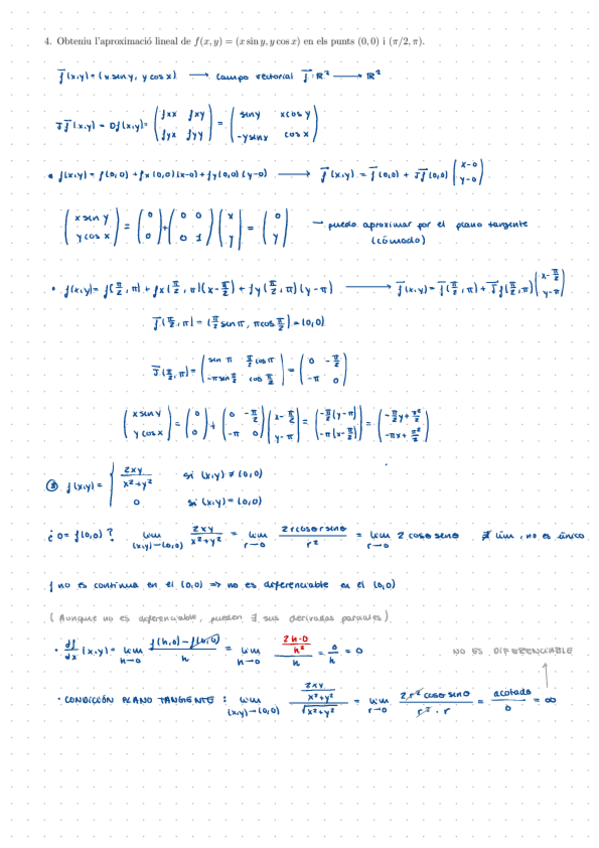 4. Obteniu l'aproximació lineal de f(x, y) = (x sin y, y cos x) en els punts (0, 0) i (π/2, π).
f(x,y) = (x sen y, y cos x) → campo vectorial f: R² → R²
Jf(x,y) = Df(x,y) = (fxx fxy / fyx fyy) = (sen y x cos y / -y sen x cos x)
• f(x,y) = f(0,0) + fx(0,0)(x-0) + fy(0,0)(y-0) → f(x,y) = f(0,0) + Jf(0,0) (x-0 / y-0)
(x sen y / y cos x) = (0 / 0) + (0 0 / 0 1) (x / y) = (0 / y) → puedo aproximar por el plano tangente
(cómodo)
• f(x,y) = f(π/2, π) + fx(π/2, π)(x-π/2) + fy(π/2, π)(y-π) → f(x,y) = f(π/2, π) + Jf(π/2, π) (x-π/2 / y-π)
f(π/2, π) = (π/2 sen π, π cos π/2) = (0,0)
J(π/2, π) = (sen π π/2 cos π / -π sen π/2 cos π/2) = (0 -π/2 / -π 0)
(x sen y / y cos x) = (0 / 0) + (0 -π/2 / -π 0) (x-π/2 / y-π) = (-π/2(y-π) / -π(x-π/2)) = (-π/2 y + π²/2 / -πx + π²/2)
f(x,y) = { 2xy / x²+y² si (x,y) ≠ (0,0)
0 si (x,y) = (0,0)
¿0 = f(0,0)? lim (x,y)→(0,0) 2xy / x²+y² = lim r→0 2r cosθ r senθ / r² = lim r→0 2 cosθ senθ ∄ lim, no es único
f no es continua en el (0,0) ⇒ no es diferenciable en el (0,0)
(Aunque no es diferenciable, pueden ∃ sus derivadas parciales)
• df/dx (x,y) = lim h→0 f(h,0) - f(0,0) / h = lim h→0 2h·0 / h² / h = 0/h = 0 NO ES DIFERENCIABLE
• CONDICIÓN PLANO TANGENTE: lim (x,y)→(0,0) 2xy / x²+y² / √x²+y² = lim r→0 2r² cosθ senθ / r²·r = acotado / 0 = ∞